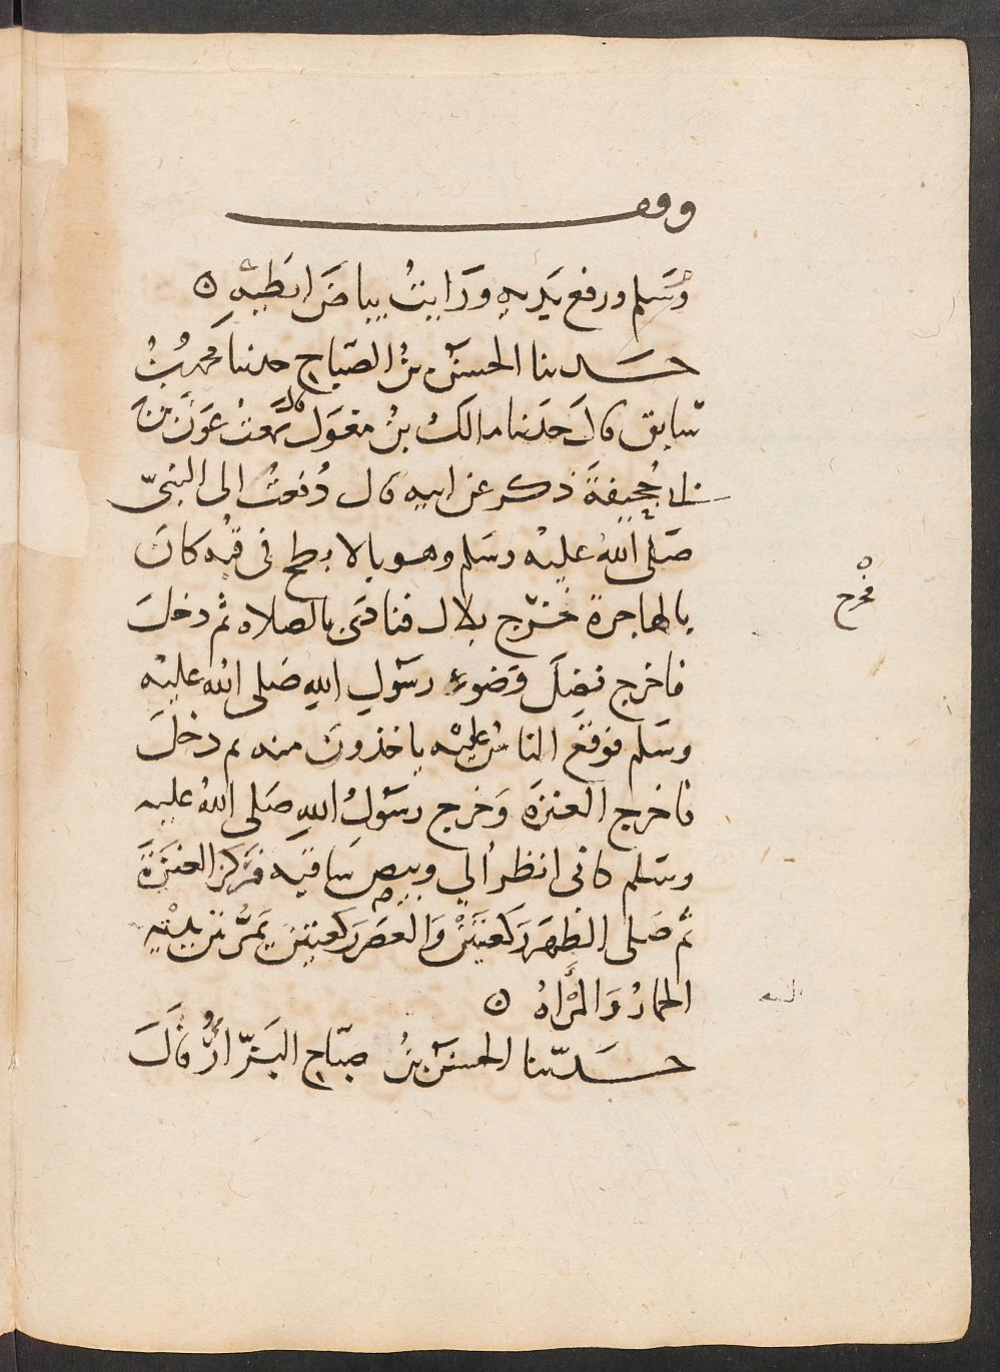 وقف
وَسَلم ورفع يَديهِ وَرَايتُ بياضَ ابطَيهِ ه
حَدثنا الحسَنُ بنُ الصّبَاحِ حدثنا محمدُ بنُ
سَابق قالَ حَدثنا مالكُ بنُ مغوَل قال سَمعتُ عَونَ بنَ
ابي جُحَيفةَ ذكر عَن ابيهِ قال دُفعتُ الى النبيّ
صَلى اللهُ عليْه وسَلم وهو بالابطح في قبّه كانَ
بالهاجرة فخرَج بلال فنادَى بالصلاه ثم دخلَ
فاخرج فضلَ وَضوءِ رسَولِ اللهِ صَلى الله عليْه
وسَلم فوقعَ الناسُ عليْه ياخذونَ منه ثم دخلَ
فاخرج العنزَة وَخرج رسَولُ اللهِ صَلى اللهُ عليه
وسَلم كاني انظر الي وبيصِ سَاقيْهِ فركز العنَزَةَ
ثم صَلى الظهرَ ركعتَينْ وَالعصَرَ ركعتين يَمرُّ بَين يديْهِ
الحمارُ وَالمرْأةُ ه
حَدّثنا الحسَنُ بنُ صبّاح البَزّارُ قالَ
فخرج